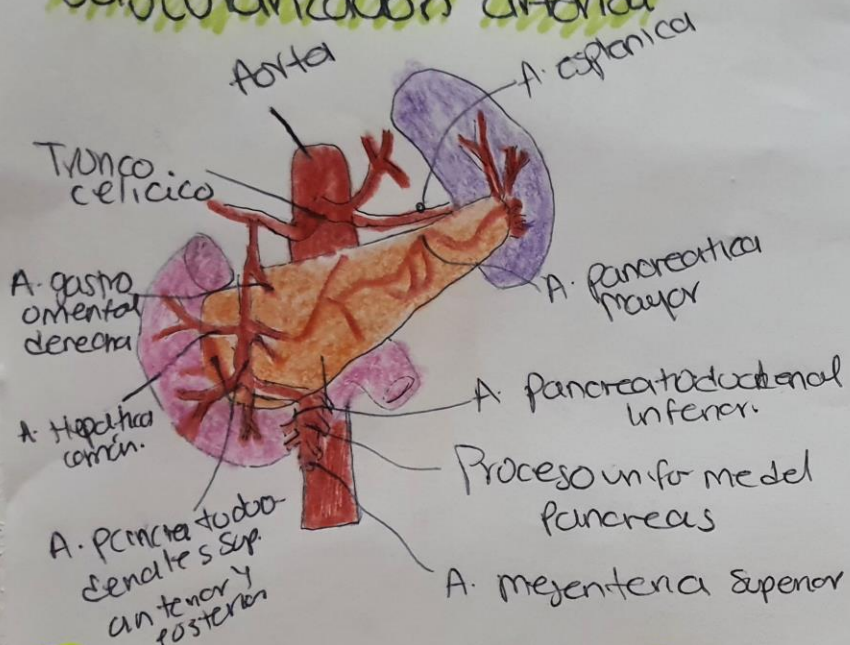 Vascularización arterial
Aorta
A. esplenica
Tronco
celicico
A. gastro
omental
derecha
A. pancreatica
mayor
A. Hepatica
común.
A. Pancreatoduodenal
inferior.
Proceso uniforme del
Pancreas
A. pancreatoduo-
denales sup.
anterior y
posterior
A. mejenteria superior